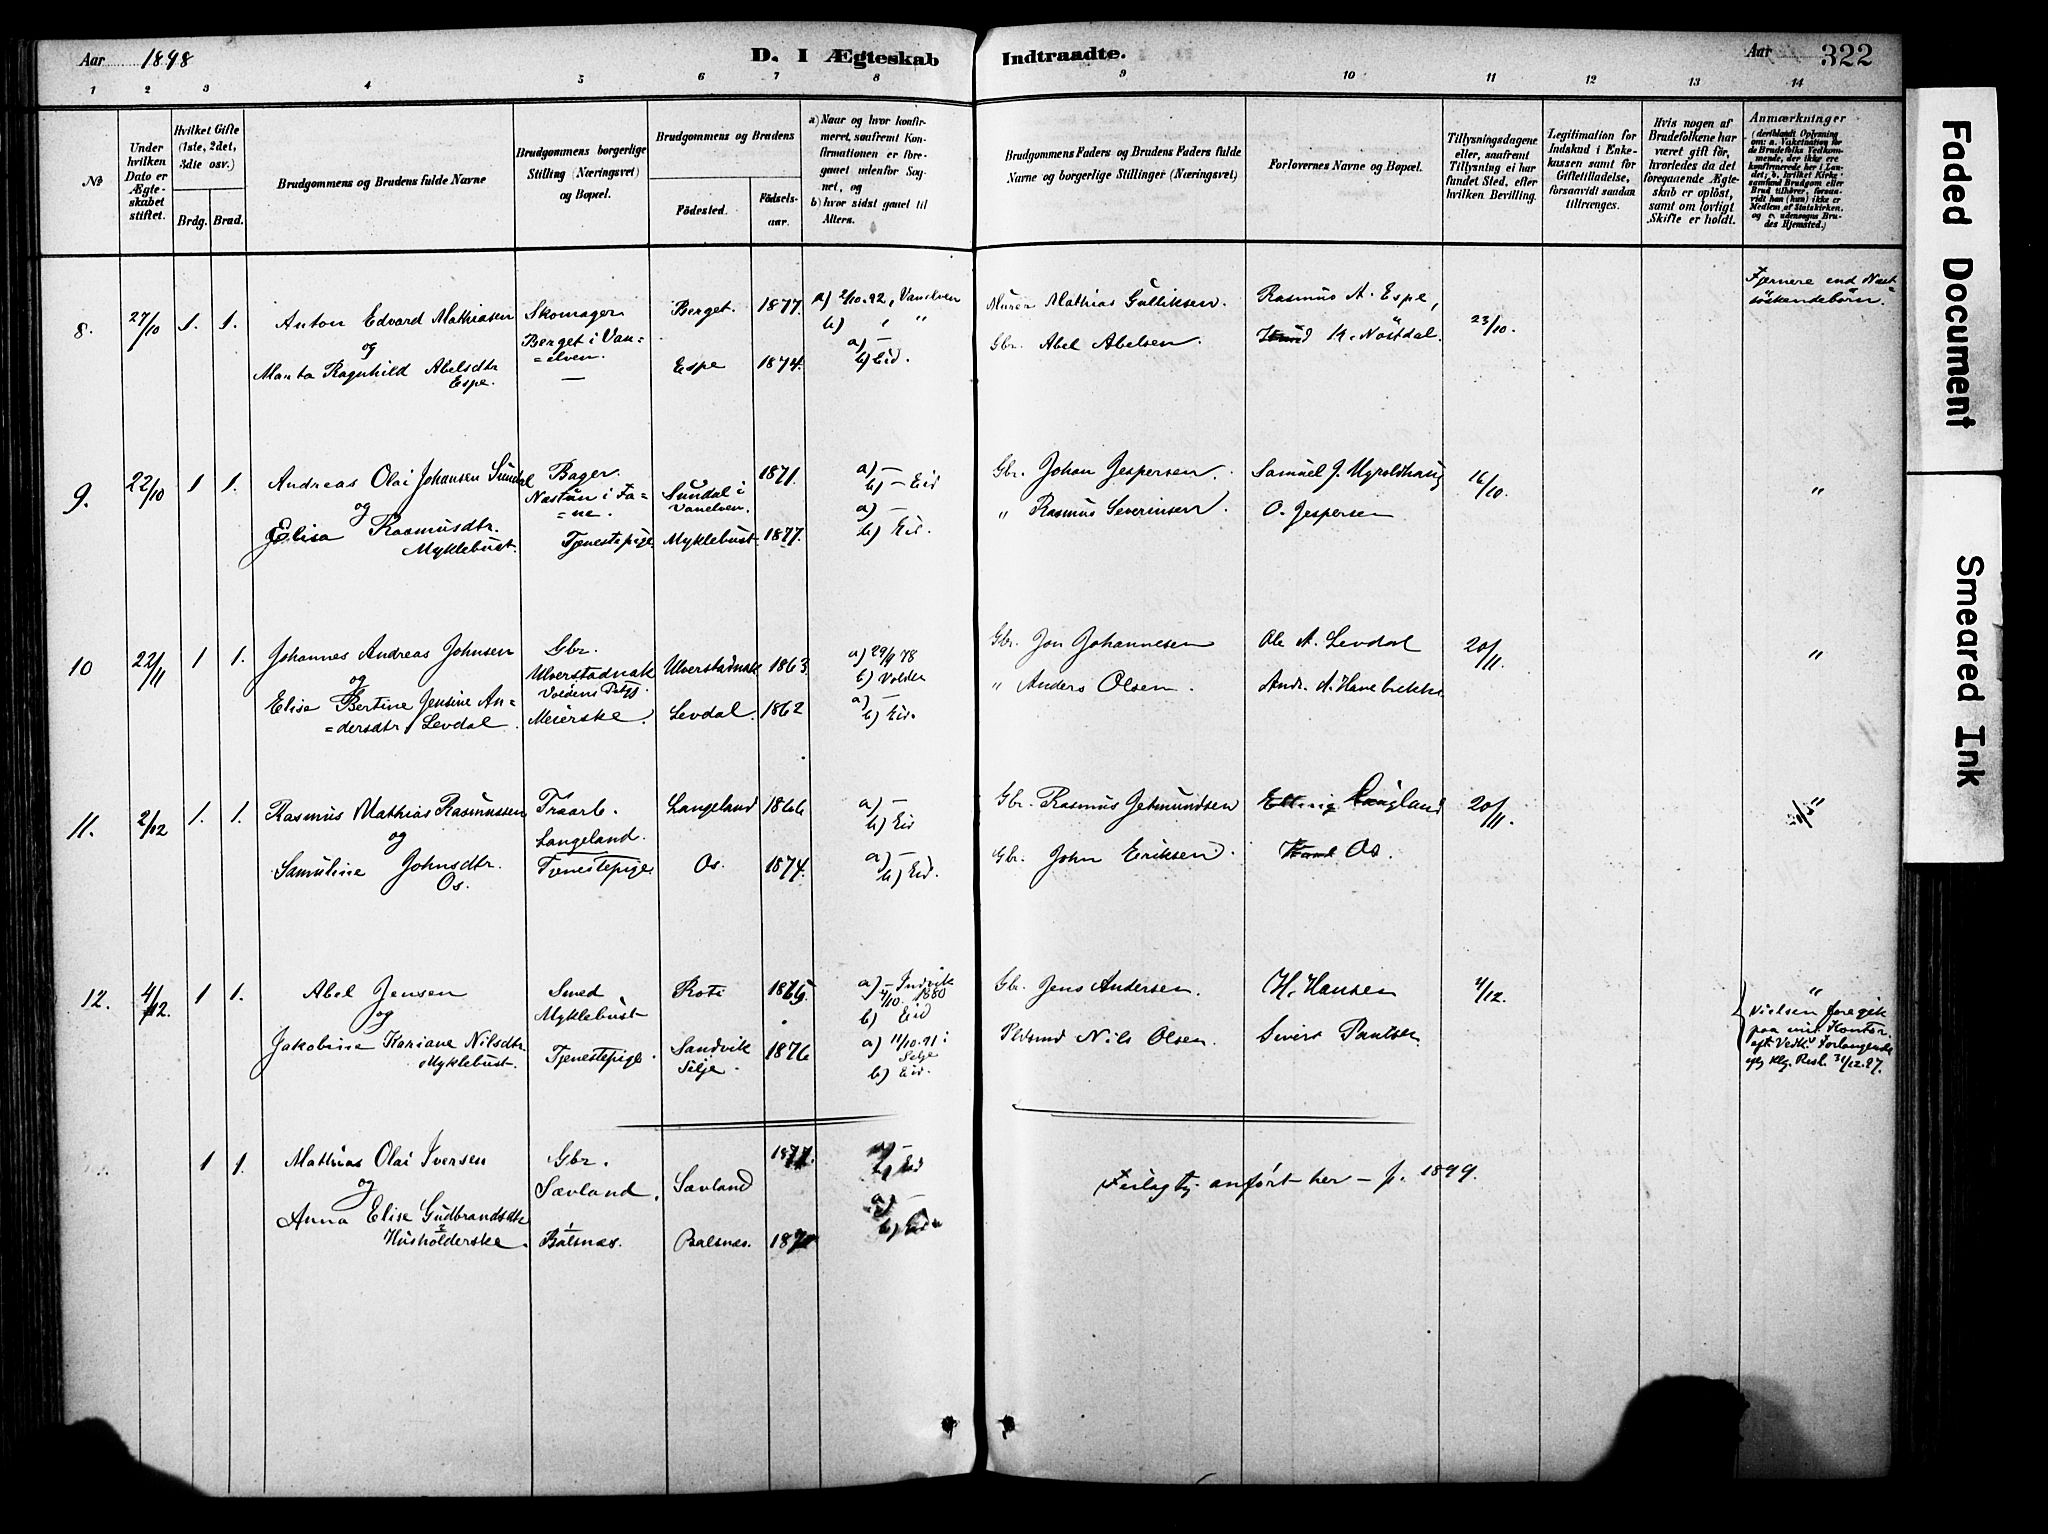 Aar 1898
D. I Ægteskab Indtraadte.
Aar 322
1 2 3 4 5 6 7 8 9 10 11 12 13 14
No
Under hvilken Dato er Ægteskabet stiftet.
Hvilket Gifte (1ste, 2det, 3die osv.)
Brdg. Brud.
Brudgommens og Brudens fulde Navne
Brudgommens borgerlige Stilling (Næringsvei) og Bopæl.
Brudgommens og Brudens
Födested. Födselsaar.
a) Naar og hvor konfirmeret, saafremt Konfirmationen er foregaaet udenfor Sognet, og
b) hvor sidst gaaet til Alters.
Brudgommens Faders og Brudens Faders fulde Navne og borgerlige Stillinger (Næringsvei)
Forlovernes Navne og Bopæl.
Tillysningsdagene eller, saafremt Tillysning ei har fundet Sted, efter hvilken Bevilling.
Legitimation for Indskud i Enkekassen samt for Giftetilladelse, forsaavidt saadan tiltrænges.
Hvis nogen af Brudefolkene har været gift för, hvorledes da det foregaaende Ægteskab er oplöst, samt om lovligt Skifte er holdt.
Anmærkninger
(deriblandt Oplysning om: a. Vaksination for de Brudefolks Vedkommende, der ikke ere konfirmerede her i Landet; b. hvilket Kirkesamfund Brudgom eller Brud tilhörer, forsaavidt han (hun) ikke er Medlem af Statskirken, og c. udensogns Brudes Hjemsted.)
8. 27/10 1. 1. Anton Edvard Mathiasen Skomager Berget. 1877. a) 2/10.92, Vanelven Murer Mathias Gulliksen. Rasmus A. Espe, 23/10. Fjernere end Næstsöskendebörn.
og Berget i Van=elven. b) "
Marta Ragnhild Abelsdtr Espe. — Espe 1874. a) — b) Eid. Gbr. Abel Abelsen. K. Nöstdal.
9. 22/10 1 1. Andreas Olai Johansen Sundal Bager. Sundal i Vanelven. 1871. a) — b) — Eid Gbr. Johan Jespersen. Samuel J. 16/10. "
og
Elisa Rasmusdtr. Myklebust. Tjenestepige Myklebust. 1877. a) — b) Eid. " Rasmus Severinsen. O. Jespersen
10 22/11 1 1. Johannes Andreas Johnsen Gbr. Ulverstadnak Ulverstadnak 1863. a) 29/9 78 b) Volden Gbr. Jon Johannesen Ole A. Levdal 20/11. "
og Voldens
Elise Bertine Jensine An=dersdtr Levdal. Meierske. Levdal. 1862 a) — b) Eid. " Anders Olsen. Andr. A.
11. 2/12 1. 1. Rasmus Mathias Rasmussen Træarb. Langeland. Langeland 1866 a) — b) Eid Gbr. Rasmus Jetmundsen Langland 20/11. "
og
Samuline Johnsdtr. Os. Tjenestepige Os. 1874. a) — b) Eid. Gbr. John Eriksen. Os.
12. 4/12. 1 1. Abel Jensen Smed Myklebust Roti 1865 a) — Indvik 4/10. 1880 b) Eid Gbr. Jens Andersen. H. Hansen 4/12. "
og
Jakobine Kariane Nilsdtr. Myklebust. Tjenestepige. Sandvik Selje. 1876 a) 11/10.91 i Selje b) Eid. Nils Olsen. Sivert Paulsen
Vielsen foregik paa mit Kontor eft. Vedk. Forlangende og Kgl. Resl. 31/12.97.
1 1. Mathias Olai Iversen Gbr. Sævland. Sævland 1877. a) — b) Eid
og
Anna Elise Gudbrandsdtr Husholderske. Bålsnæs. Balsnæs. 1871 a) — b) Eid.
Feilagtig anført her — p. 1899.
Faded Document
Smeared Ink